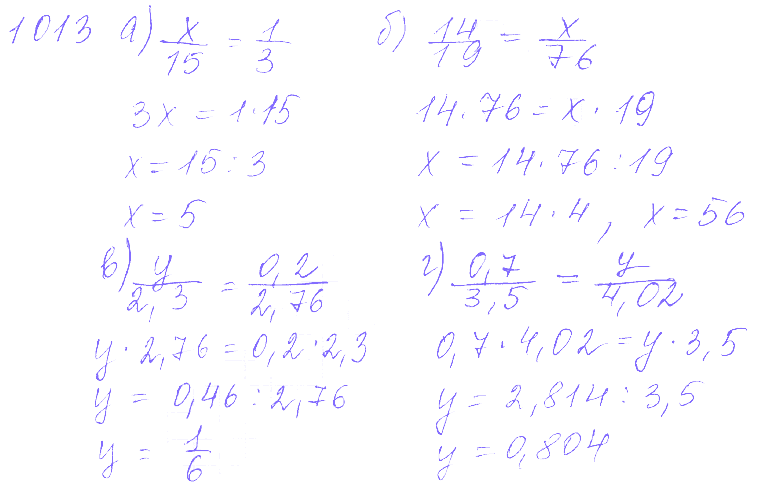 1013 а) x/15 = 1/3
3x = 1·15
x = 15 : 3
x = 5
б) 14/19 = x/76
14·76 = x·19
x = 14·76 : 19
x = 14·4, x = 56
в) y/2,3 = 0,2/2,76
y·2,76 = 0,2·2,3
y = 0,46 : 2,76
y = 1/6
г) 0,7/3,5 = y/4,02
0,7·4,02 = y·3,5
y = 2,814 : 3,5
y = 0,804